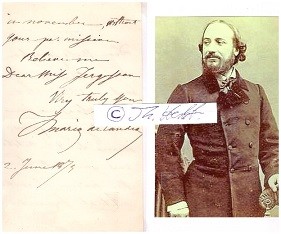 in november, without
your permission
Believe me
Dear Miss Fergusson
Very truly yours
Mario de Candia
2. June 1873
© Th. Heft